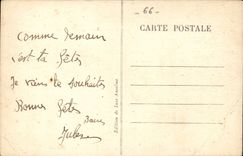 66
CARTE POSTALE
Comme demain
c'est ta fête
Je viens te souhaiter
Bonne fête
Jules
Edition de